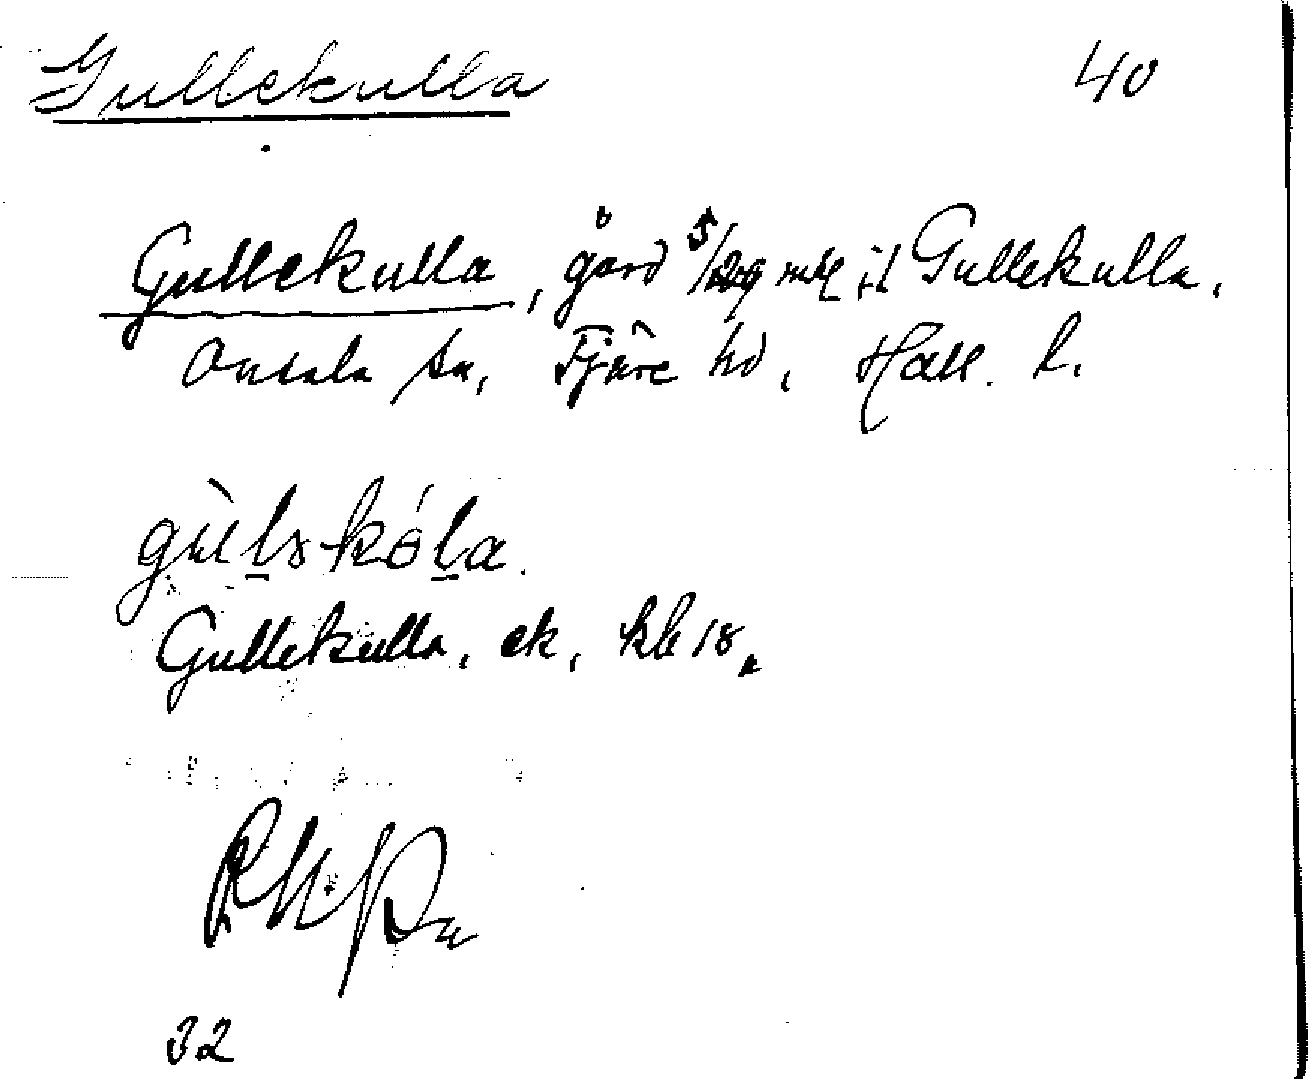 Gullekulla 40
Gullekulla, gård mtl i Gullekulla,
Onsala sn, Fjäre hd, Hall. l.
Gullekulla, ek, kbl 18.
32